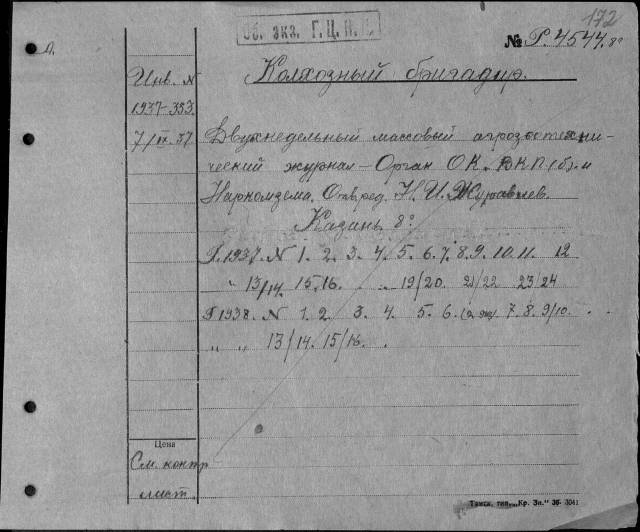 172
Об. экз. Г.Ц.К.П.
№ Р.4544. 8°
О.
Колхозный бригадир.
Инв. N
1937-353.
7/IX.37.
Двухнедельный массовый агрозоотехни-
ческий журнал — Орган ОК. ВКП(б). и
Наркомзема. Отв. ред. Н. И. Журавлев.
Казань 8°
Г. 1937. N 1. 2. 3. 4. 5. 6. 7. 8. 9. 10. 11. 12
" 13/14. 15.16. 19/20. 21/22 23/24
Г. 1938. N 1. 2. 3. 4. 5. 6. (2 экз) 7. 8. 9/10.
" " 13/14. 15/16.
Цена
См. контр.
лист.
"Кр. Зн." 36- 3041